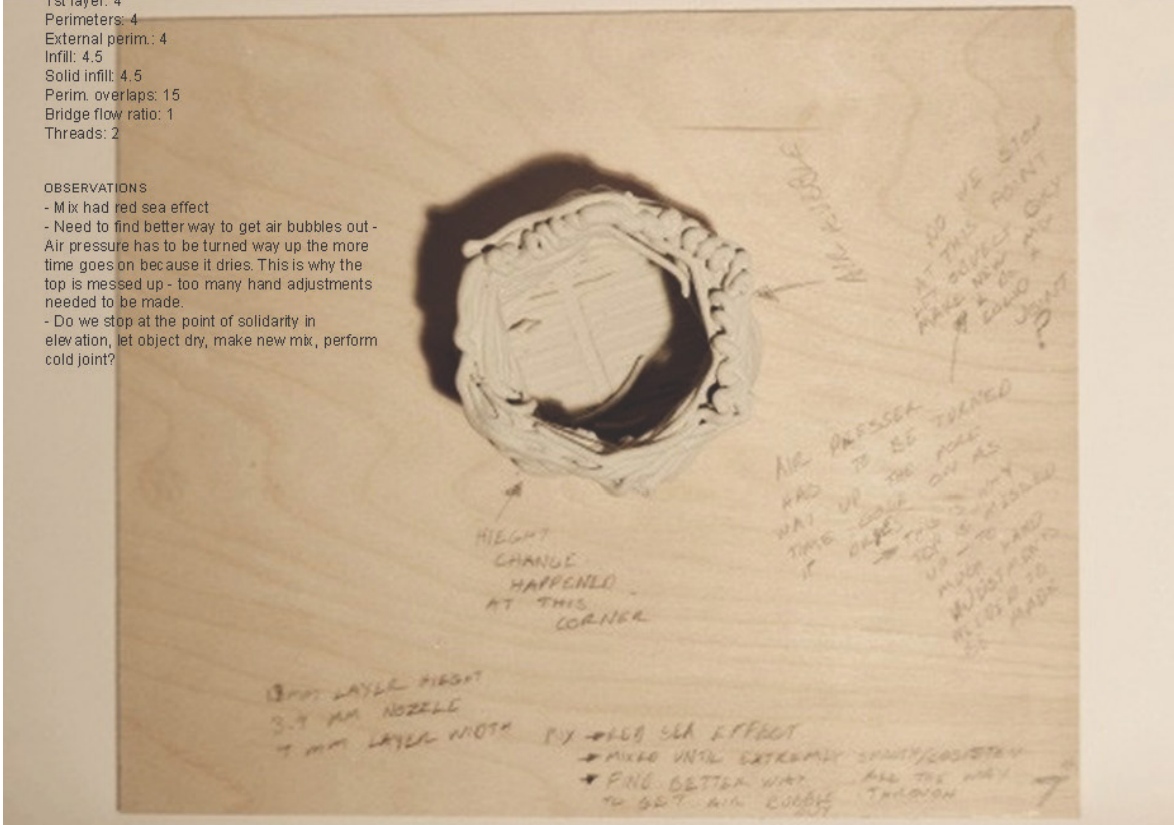 1st layer: 4
Perimeters: 4
External perim.: 4
Infill: 4.5
Solid infill: 4.5
Perim. overlaps: 15
Bridge flow ratio: 1
Threads: 2
OBSERVATIONS
- Mix had red sea effect
- Need to find better way to get air bubbles out -
Air pressure has to be turned way up the more
time goes on because it dries. This is why the
top is messed up - too many hand adjustments
needed to be made.
- Do we stop at the point of solidarity in
elevation, let object dry, make new mix, perform
cold joint?
AIR BUBBLE
DO WE STOP
AT THIS POINT
LET OBJECT DRY
MAKE NEW MIX
& DO A
COLD JOINT
?
AIR PRESSER
HAS TO BE TURNED
WAY UP THE MORE
TIME GOES ON AS
IT DRIES
THIS IS WHY
TOP IS MESSED
UP - TO
MUCH HAND
ADJUSTMENTS
NEEDED TO
BE MADE
HIEGHT
CHANGE
HAPPENED
AT THIS
CORNER
MM LAYER HIEGHT
3.9 MM NOZZLE
7 MM LAYER WIDTH
MIX → RED SEA EFFECT
→ MIXED UNTIL EXTREMLY
ALL THE WAY
THROUGH
→ FIND BETTER WAY
TO GET AIR BUBBLE
OUT
7